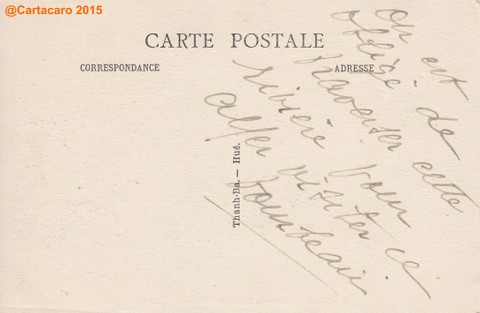 @Cartacaro 2015
CARTE POSTALE
CORRESPONDANCE
ADRESSE
Thanh-Ba. — Hué.
On est
obligé de
traverser cette
rivière pour
aller visiter ce
tombeau